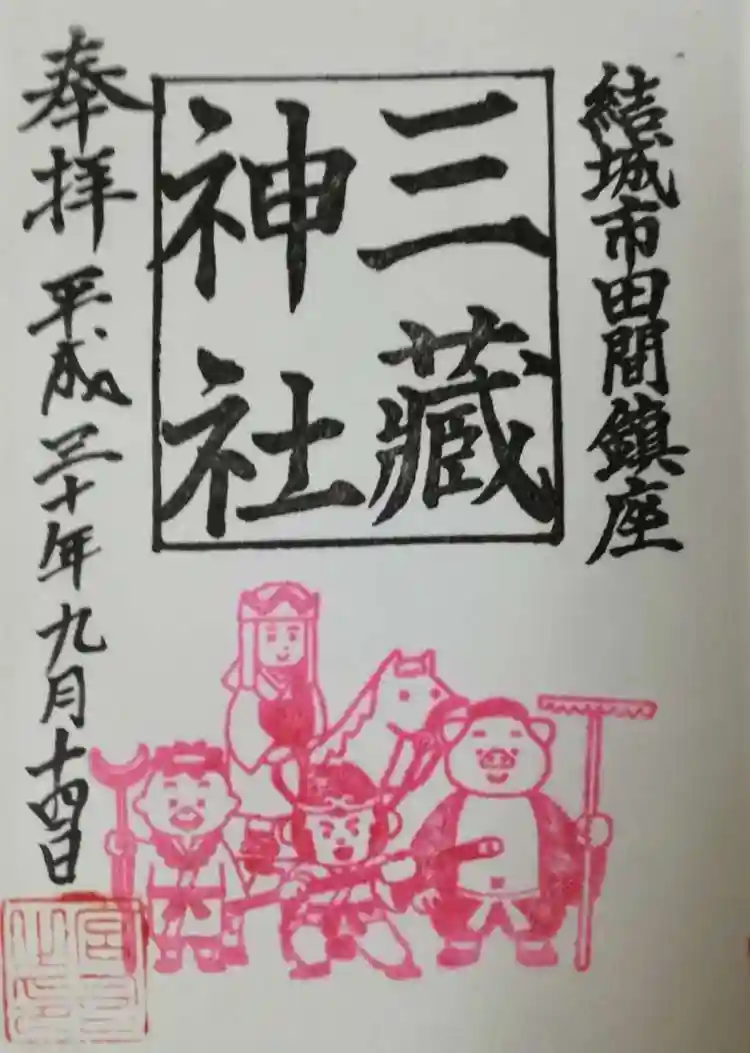 結城市田間鎮座
三藏
神社
奉拝 平成三十年九月十四日